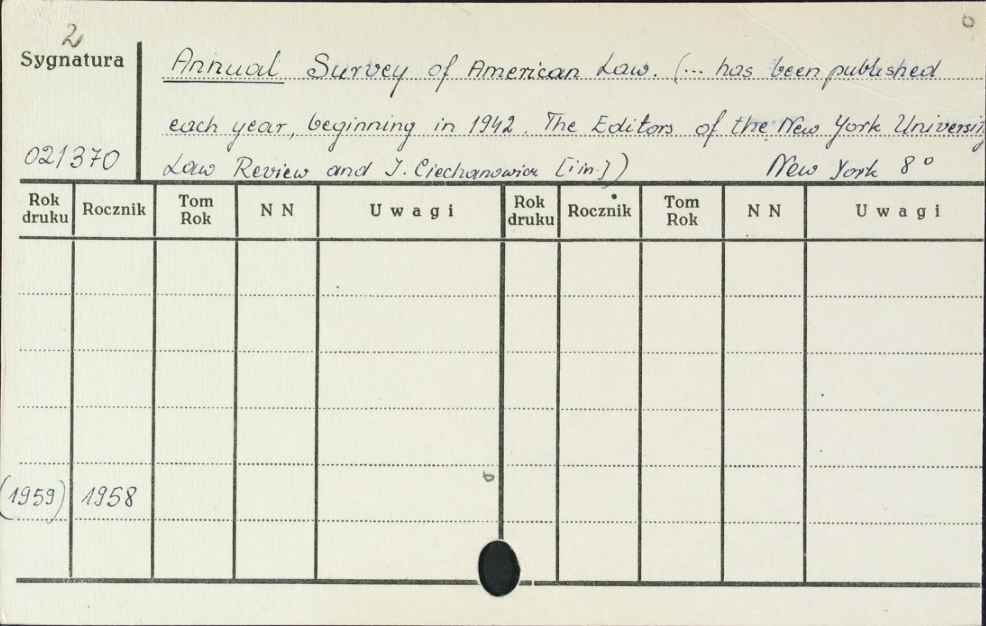 2
Sygnatura
Annual Survey of American Law. (... has been published
each year, beginning in 1942. The Editors of the New York University
021370
Law Review and J. Ciechanowicz [i in.]) New York 8°
Rok druku Rocznik Tom Rok N N Uwagi Rok druku Rocznik Tom Rok N N Uwagi
(1959) 1958